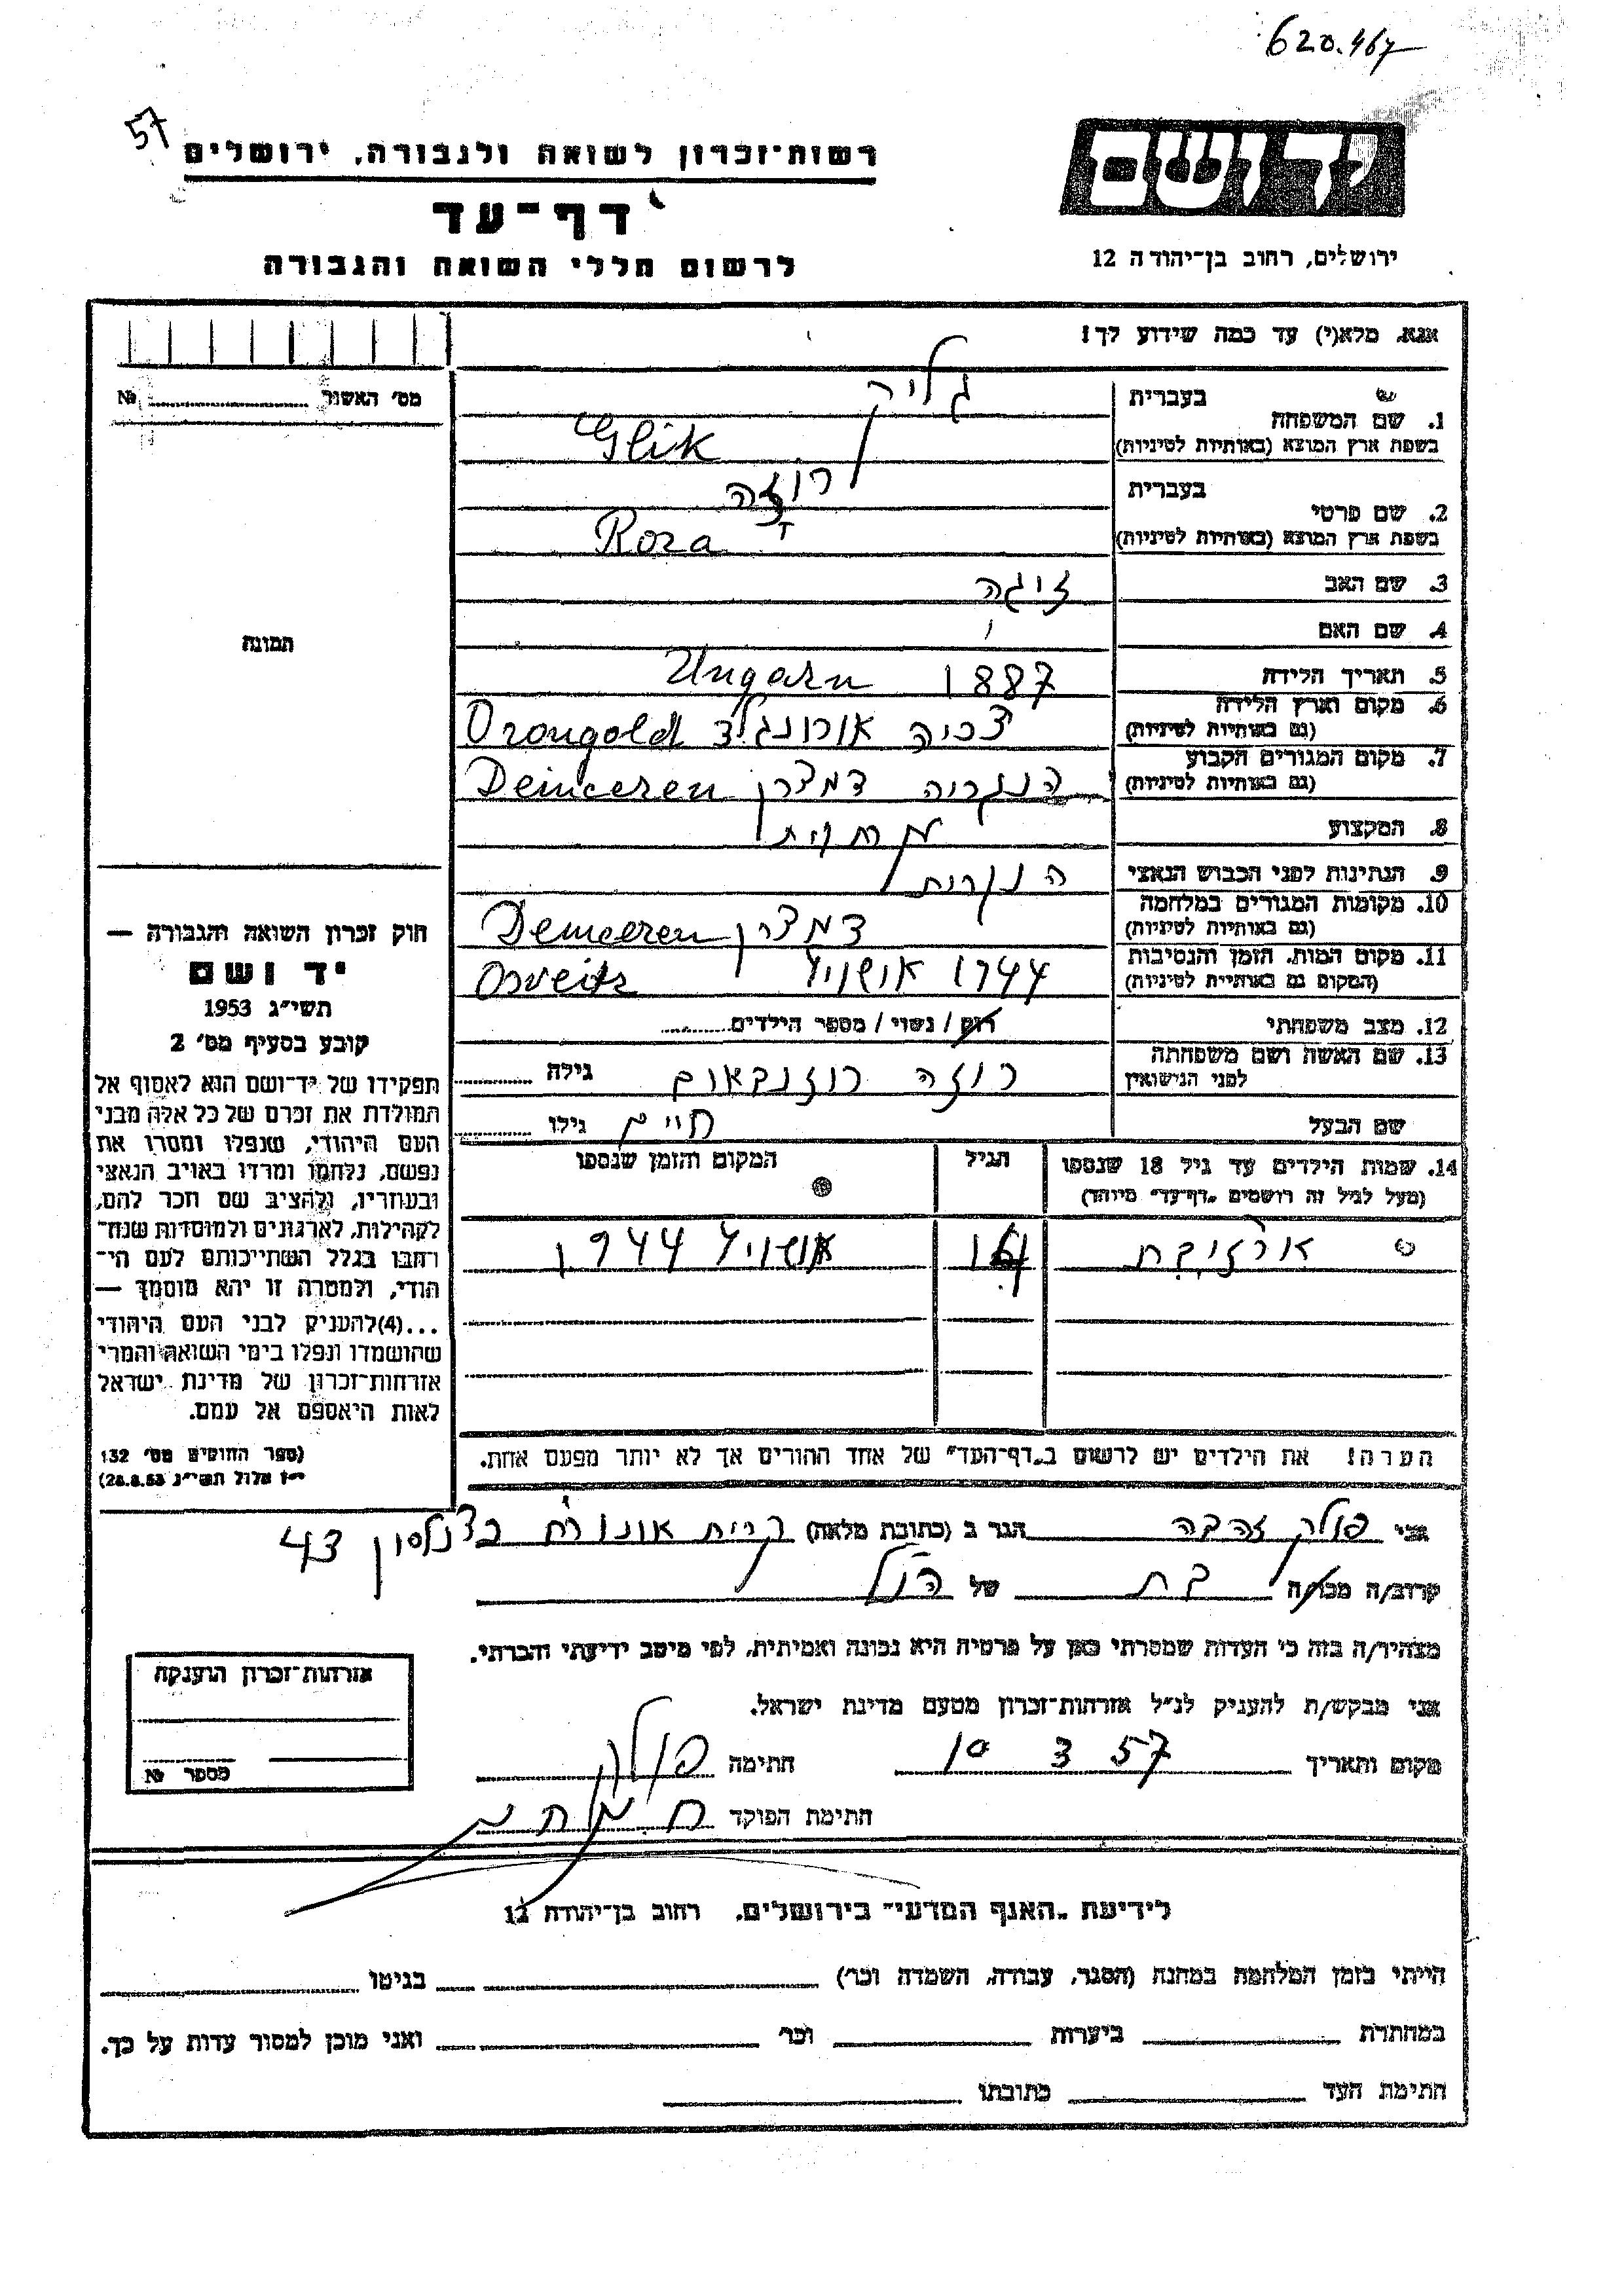 620.467
57
רשות־זכרון לשואה ולגבורה, ירושלים
יד ושם
דף־עד
ירושלים, רחוב בן־יהודה 12
לרשום חללי השואה והגבורה
אנא, מלא(י) עד כמה שידוע לך!
מס' האשור № 
1. שם המשפחה
בעברית גליק
בשפת ארץ המוצא (באותיות לטיניות) Glik
2. שם פרטי
בעברית רוזה
בשפת ארץ המוצא (באותיות לטיניות) Roza
3. שם האב זיגה
4. שם האם
תמונה
5. תאריך הלידה 1887 Ungarn
6. מקום וארץ הלידה
(גם באותיות לטיניות) אורונגלד Orongold
7. מקום המגורים הקבוע
(גם באותיות לטיניות) הונגריה דמצרן Demceren
8. המקצוע
9. הנתינות לפני הכבוש הנאצי הנגרית
10. מקומות המגורים במלחמה
(גם באותיות לטיניות) דמצרן Demceren
11. מקום המות, הזמן והנסיבות
(המקום גם באותיות לטיניות) 1944 אושויץ Osveitz
12. מצב משפחתי רווק / נשוי / מספר הילדים
13. שם האשה ושם משפחתה
לפני הנישואין רוזה רוזנבאום גילה
שם הבעל חיים גילו
14. שמות הילדים עד גיל 18 שנספו
(מעל לגיל זה רושמים „דף־עד" מיוחד)
הגיל
המקום והזמן שנספו
אושויץ 1944
הערה! את הילדים יש לרשום ב„דף־העד" של אחד ההורים אך לא יותר מפעם אחת.
חוק זכרון השואה והגבורה —
יד ושם
תשי"ג 1953
קובע בסעיף מס' 2
תפקידו של יד־ושם הוא לאסוף אל
המולדת את זכרם של כל אלה מבני
העם היהודי, שנפלו ומסרו את
נפשם, נלחמו ומרדו באויב הנאצי
ובעוזריו, ולהציב שם וזכר להם,
לקהילות, לארגונים ולמוסדות שנח־
רבו בגלל השתייכותם לעם הי־
הודי, ולמטרה זו יהא מוסמך —
...(4)להעניק לבני העם היהודי
שהושמדו ונפלו בימי השואה והמרי
אזרחות־זכרון של מדינת ישראל
לאות היאספם אל עמם.
(ספר החוקים מס' 132
י"ז אלול תשי"ג 28.8.53)
אני פולק זהבה הגר ב (כתובת מלאה) קרית אונו 43
קרוב/ה מכר/ה בת של הנ"ל
מצהיר/ה בזה כי העדות שמסרתי כאן על פרטיה היא נכונה ואמיתית, לפי מיטב ידיעתי והכרתי.
אני מבקש/ת להעניק לנ"ל אזרחות־זכרון מטעם מדינת ישראל.
מקום ותאריך 10 3 57 חתימה פולק
חתימת הפוקד
אזרחות־זכרון הוענקה
מספר №
לידיעת „האגף המדעי" בירושלים, רחוב בן־יהודה 12
הייתי בזמן המלחמה במחנה (הסגר, עבודה, השמדה וכו') בגיטו
במחתרת ביערות וכו' ואני מוכן למסור עדות על כך.
חתימת העד כתובתו